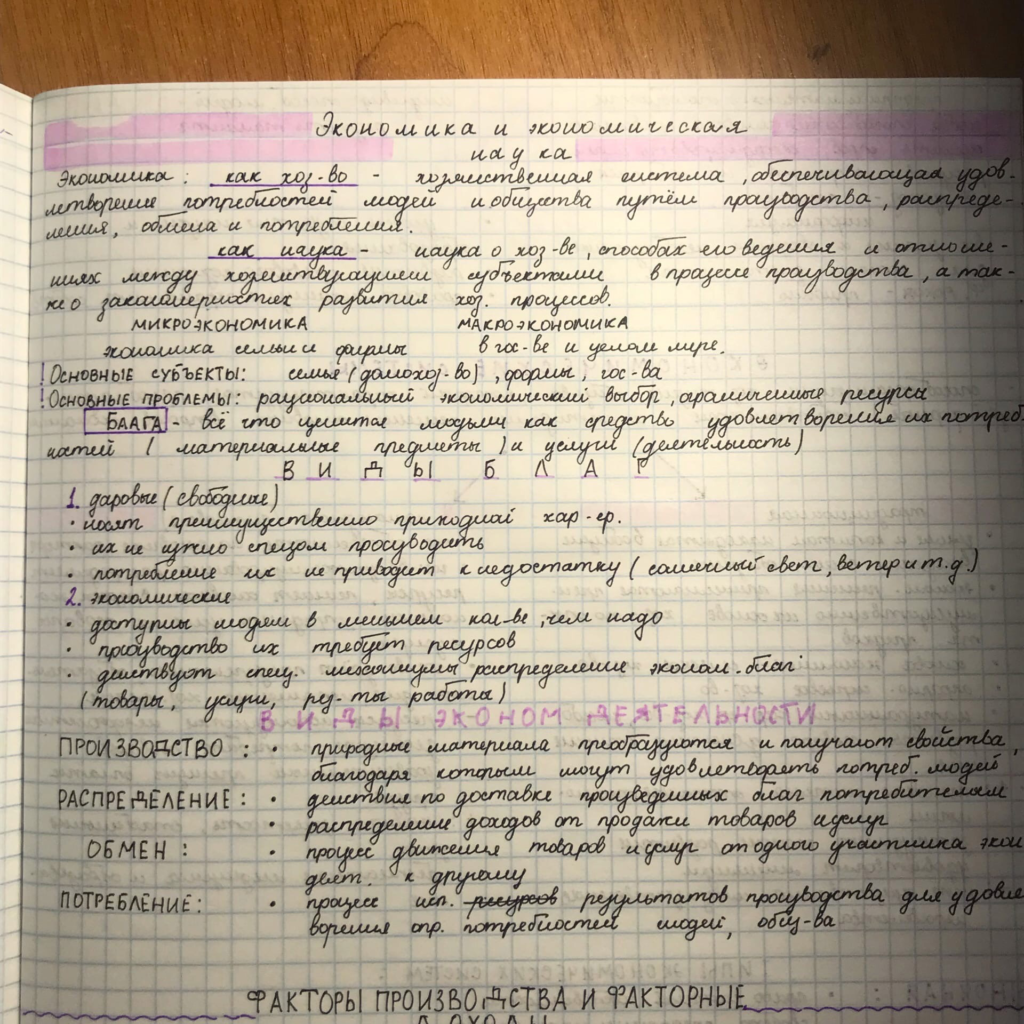 Экономика и экономическая
наука
Экономика: как хоз-во - хозяйственная система, обеспечивающая удов-
летворение потребностей людей и общества путём производства, распреде-
ления, обмена и потребления.
как наука - наука о хоз-ве, способах его ведения и отноше-
ниях между хозяйствующими субъектами в процессе производства, а так-
же о закономерностях развития хоз. процессов.
МИКРОЭКОНОМИКА МАКРОЭКОНОМИКА
экономика семьи и фирмы в гос-ве и целом мире.
! Основные субъекты: семья (домохоз-во), фирмы, гос-ва
! Основные проблемы: рациональный экономический выбор, ограниченные ресурсы
Блага - всё что ценится людьми как средство удовлетворения их потреб
ностей (материальные предметы) и услуги (деятельность)
ВИДЫ БЛАГ
1. даровые (свободные)
• носят преимущественно природный хар-ер.
• их не нужно спецом производить
• потребление их не приводит к недостатку (солнечный свет, ветер и т.д.)
2. экономические
• доступны людям в меньшем кол-ве, чем надо
• производство их требует ресурсов
• действуют спец. механизмы распределения эконом. благ
(товары, услуги, рез-ты работы)
ВИДЫ ЭКОНОМ ДЕЯТЕЛЬНОСТИ
ПРОИЗВОДСТВО: • природные материала преобразуются и получают свойства,
благодаря которым могут удовлетворять потреб. людей
РАСПРЕДЕЛЕНИЕ: • действия по доставке произведенных благ потребителям
• распределение доходов от продажи товаров и услуг
ОБМЕН: • процес движения товаров и услуг от одного участника экон
деят. к другому
ПОТРЕБЛЕНИЕ: • процесс исп. ресурсов результатов производства для удовле
ворения опр. потребностей людей, общ-ва
ФАКТОРЫ ПРОИЗВОДСТВА И ФАКТОРНЫЕ
ДОХОДЫ